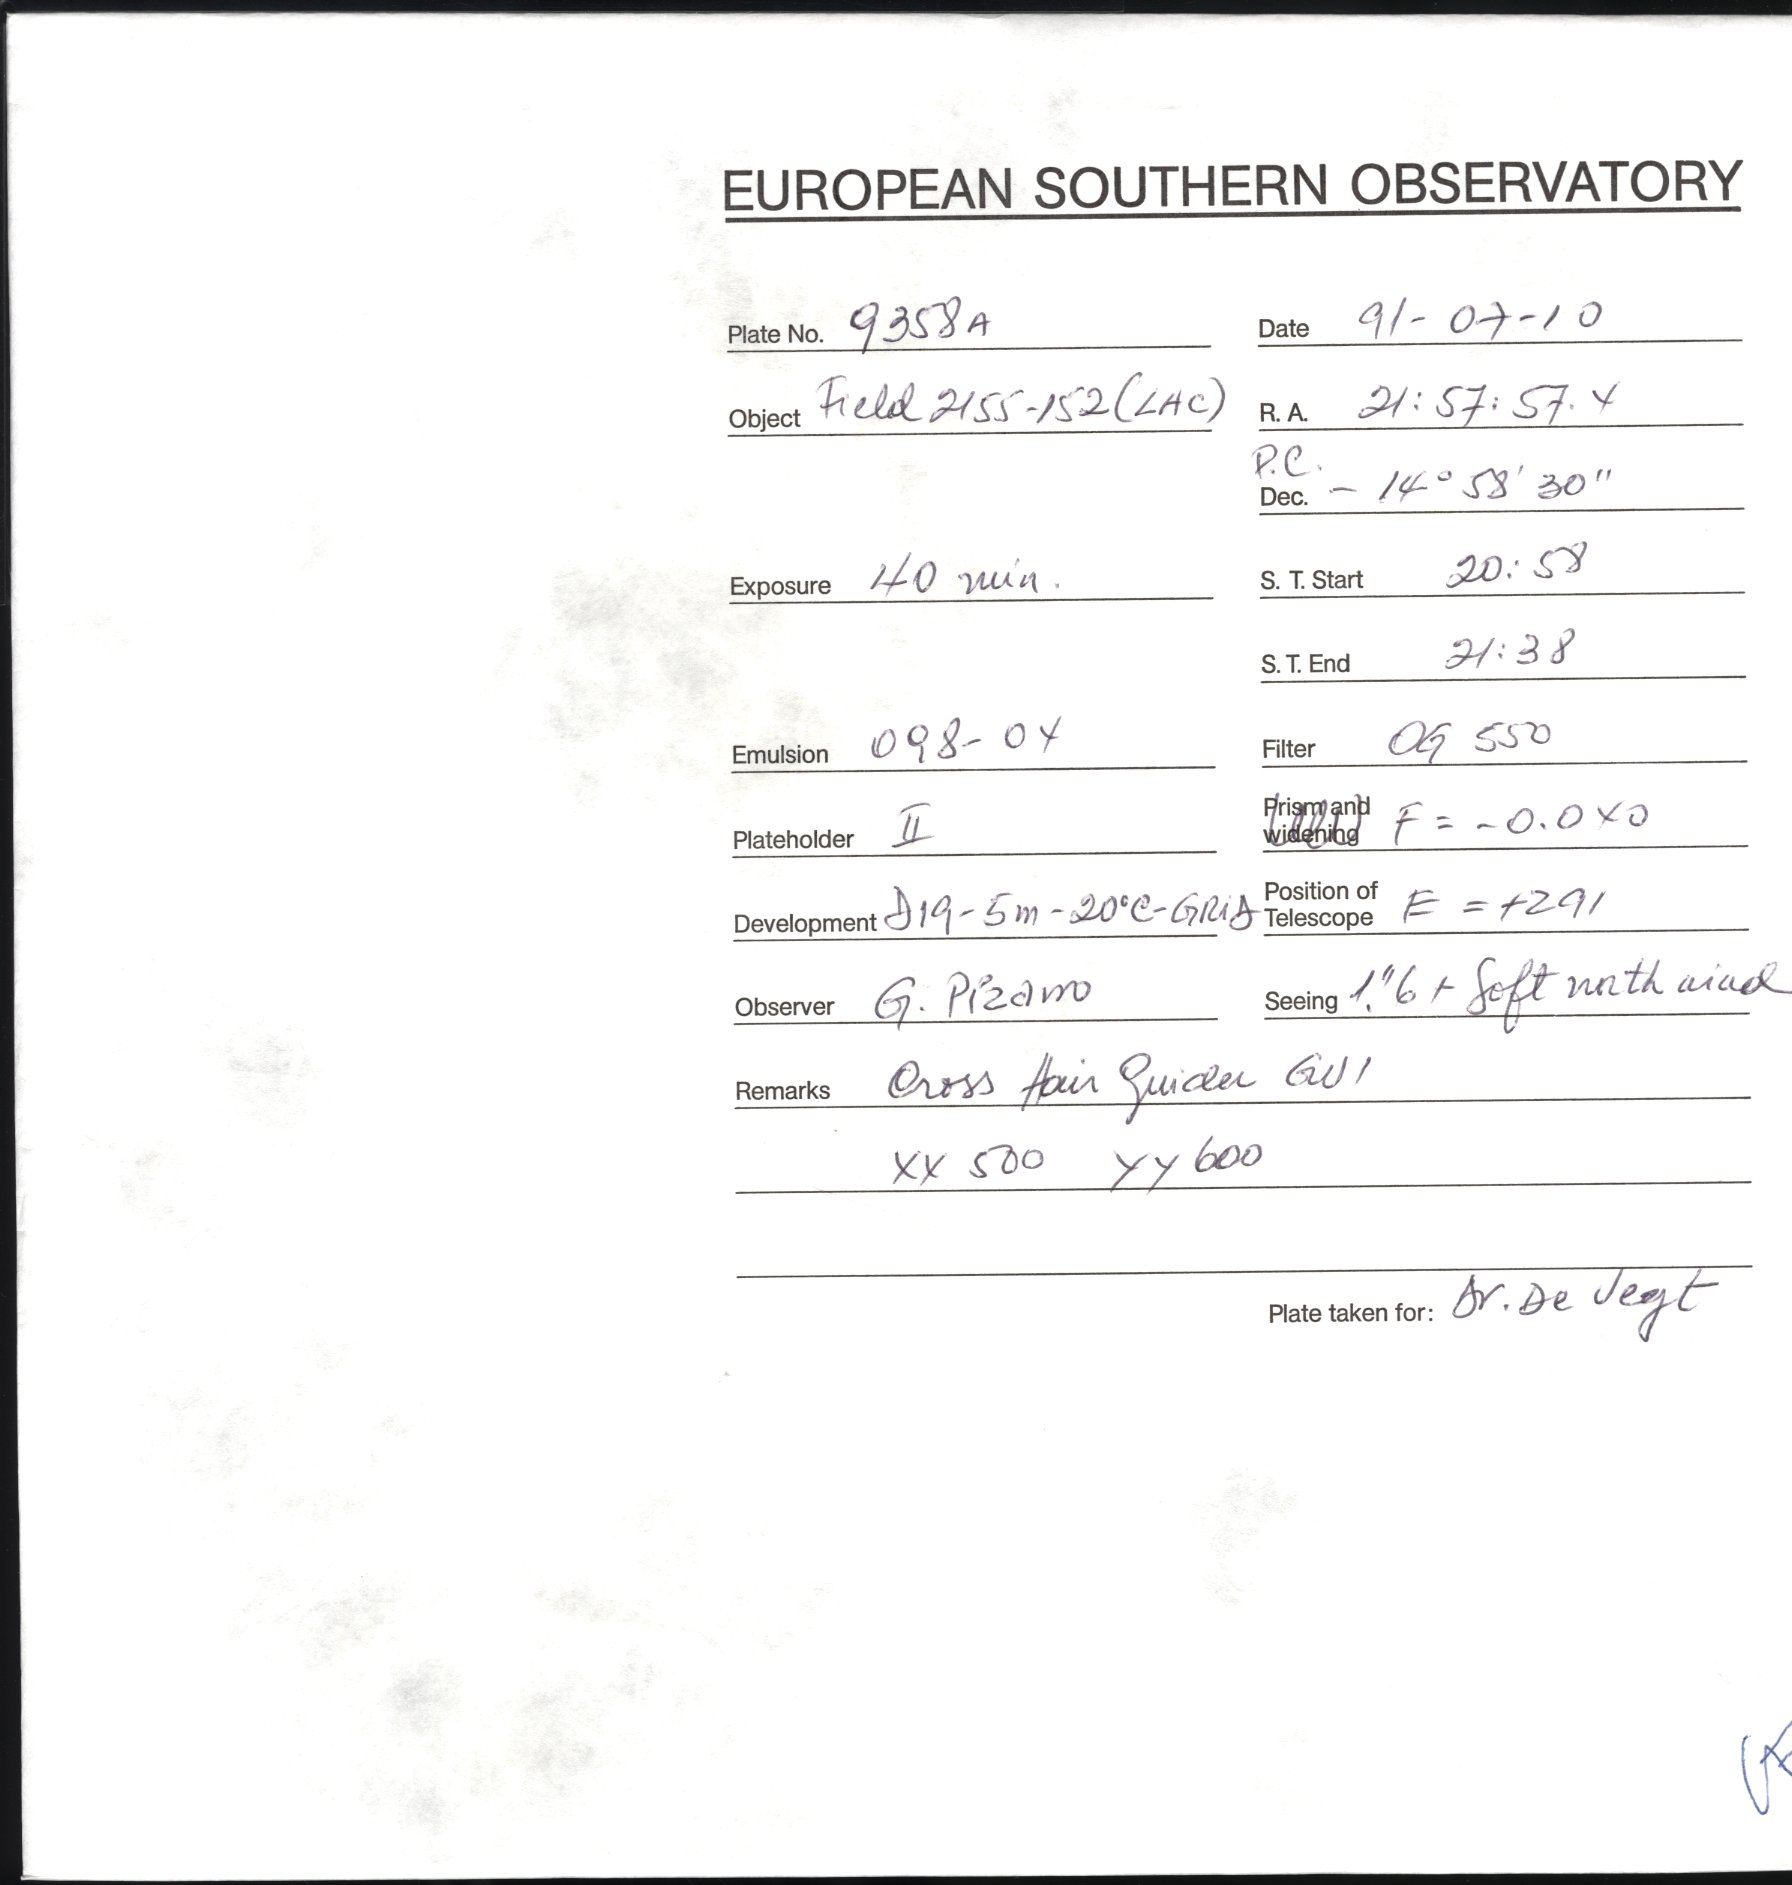 EUROPEAN SOUTHERN OBSERVATORY
Plate No. 9358A Date 91-07-10
Object Field 2155-152 (LAC) R. A. 21:57:57.4
P.C.
Dec. - 14° 58' 30"
Exposure 40 min. S. T. Start 20:58
S. T. End 21:38
Emulsion 098-04 Filter OG 550
Plateholder II Prism and widening F = -0.040
Development D19-5m-20°C-GRID Position of Telescope E = +291
Observer G. Pizarro Seeing 1."6 + Soft north wind
Remarks Cross Hair Guider GU1
XX 500 YY 600
Plate taken for: Dr. De Vegt